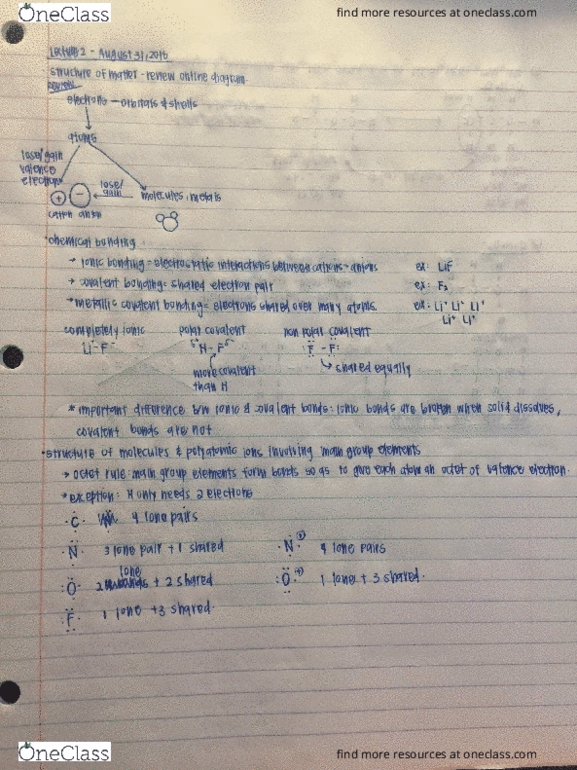 OneClass
find more resources at oneclass.com
Lecture 2 - August 31, 2016
structure of matter - review online diagram
review
electrons - orbitals & shells
atoms
lose/gain
valence
electrons
lose/
gain
molecules, metals
+ -
cation anion
• chemical bonding
→ ionic bonding = electrostatic interactions between cations - anions ex: LiF
→ covalent bonding = shared electron pair ex: F₂
→ metallic covalent bonding = electrons shared over many atoms. ex - Li⁺ Li⁺ Li⁺
Li⁺ Li⁺
completely ionic polar covalent non polar covalent
Li⁺ F⁻ H - F F - F
more covalent
than H
shared equally
* important difference b/w ionic & covalent bonds: ionic bonds are broken when solid dissolves,
covalent bonds are not
• structure of molecules & polyatomic ions involving main group elements
→ octet rule: main group elements form bonds so as to give each atom an octet of valence electron.
* exception: H only needs 2 electrons
C 4 lone pairs
N 3 lone pair + 1 shared N 4 lone pairs
lone
O 2 + 2 shared O 1 lone + 3 shared.
F 1 lone + 3 shared.
OneClass
find more resources at oneclass.com